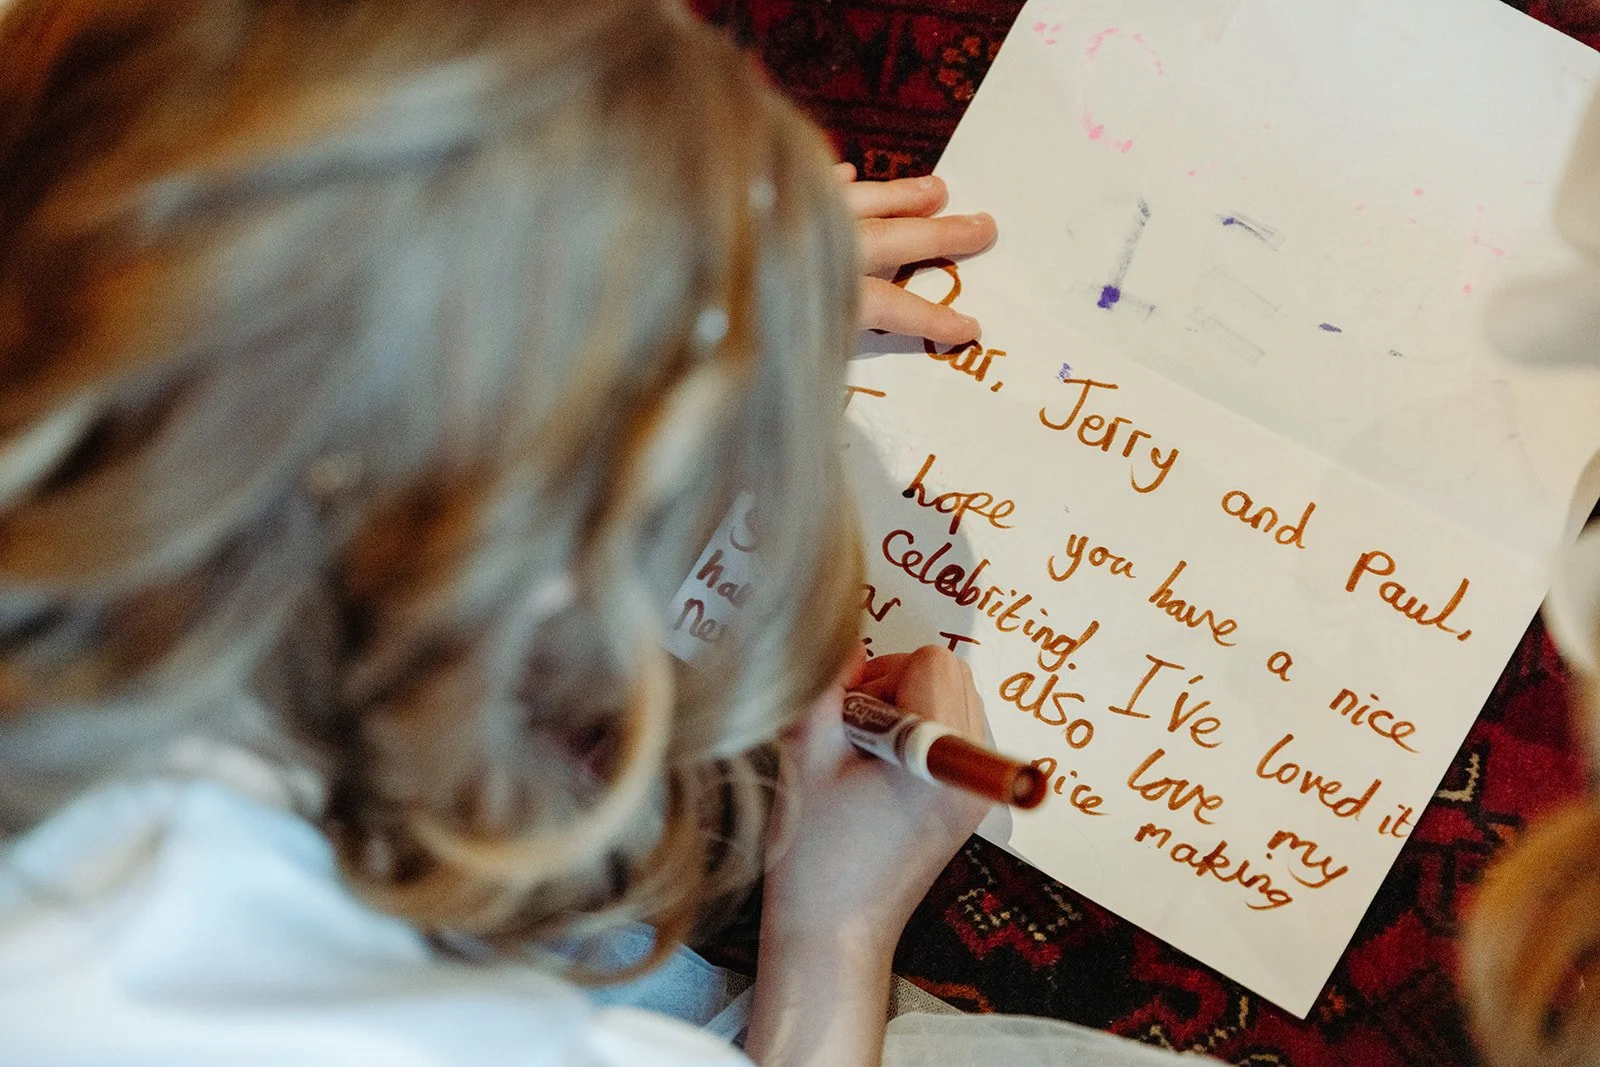 Dear, Jerry and Paul,
I hope you have a nice
Celebriting. I've loved it
I also love my
nice making
Crayola